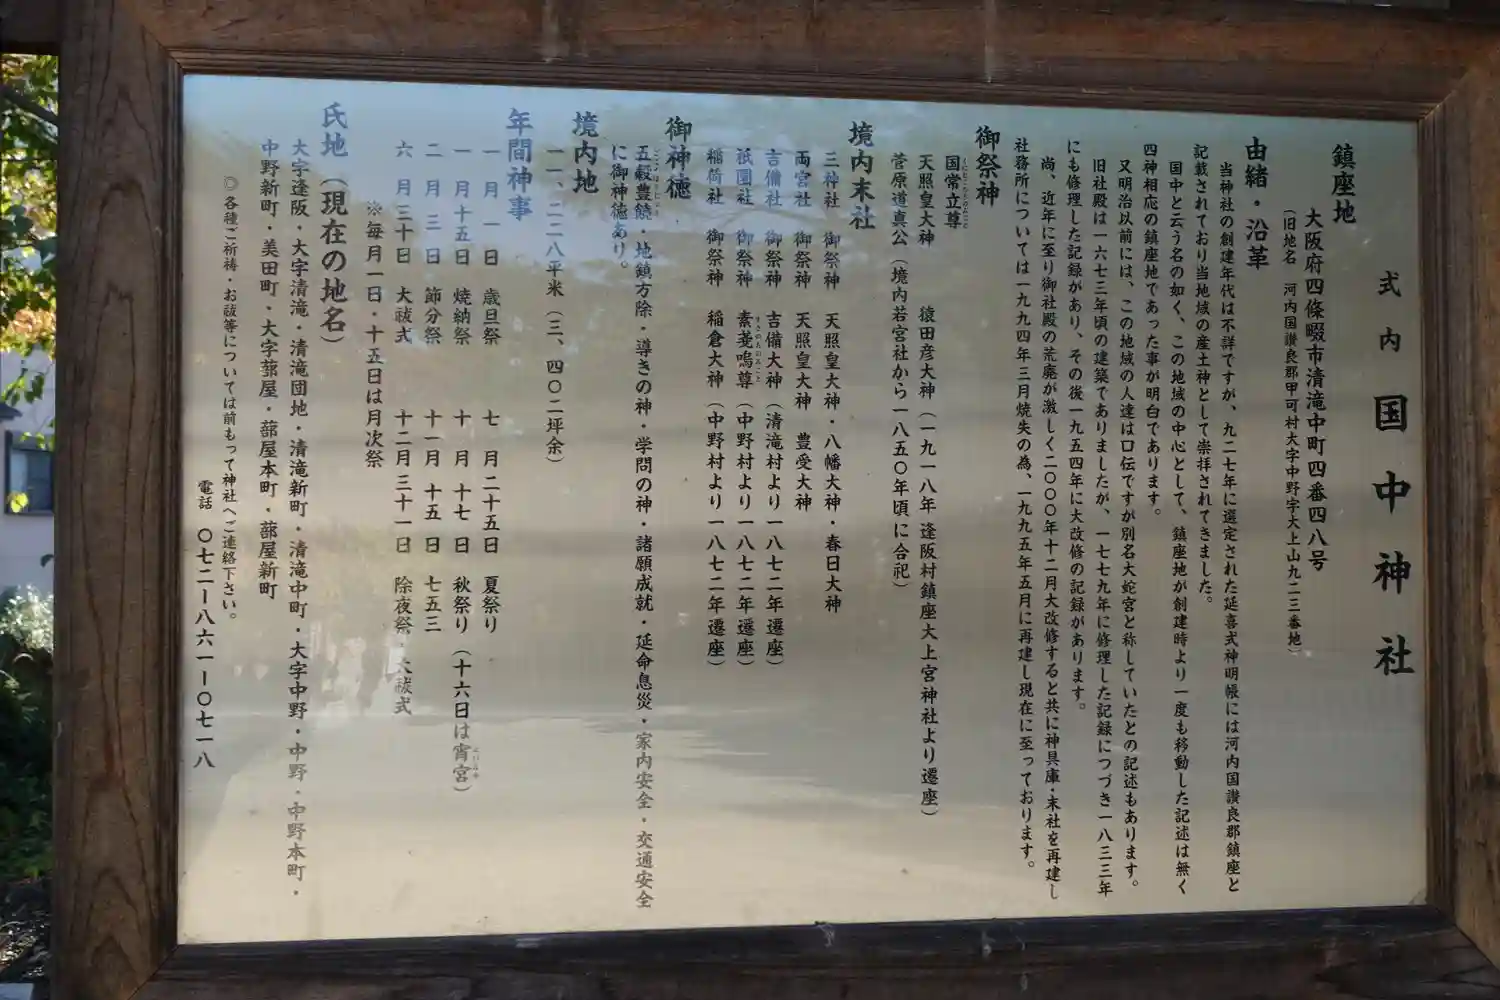 式内 国中神社
鎮座地
大阪府四條畷市清滝中町四番四八号
(旧地名 河内国讃良郡甲可村大字中野字大上山九二三番地)
由緒・沿革
当神社の創建年代は不詳ですが、九二七年に選定された延喜式神明帳には河内国讃良郡鎮座と
記載されており当地域の産土神として崇拝されてきました。
国中と云う名の如く、この地域の中心として、鎮座地が創建時より一度も移動した記述は無く
四神相応の鎮座地であった事が明白であります。
又明治以前には、この地域の人達は口伝ですが別名大蛇宮と称していたとの記述もあります。
旧社殿は一六七三年頃の建築でありましたが、一七七九年に修理した記録につづき一八三三年
にも修理した記録があり、その後一九五四年に大改修の記録があります。
尚、近年に至り御社殿の荒廃が激しく二〇〇〇年十二月大改修すると共に神具庫・末社を再建し
社務所については一九九四年三月焼失の為、一九九五年五月に再建し現在に至っております。
御祭神
国常立尊
天照皇大神 猿田彦大神(一九一八年 逢阪村鎮座大上宮神社より遷座)
菅原道真公(境内若宮社から一八五〇年頃に合祀)
境内末社
三神社 御祭神 天照皇大神・八幡大神・春日大神
両宮社 御祭神 天照皇大神 豊受大神
吉備社 御祭神 吉備大神(清滝村より一八七二年遷座)
祇園社 御祭神 素戔嗚尊(中野村より一八七二年遷座)
稲荷社 御祭神 稲倉大神(中野村より一八七二年遷座)
御神徳
五穀豊饒・地鎮方除・導きの神・学問の神・諸願成就・延命息災・家内安全・交通安全
に御神徳あり。
境内地
一一、二二八平米(三、四〇二坪余)
年間神事
一月一日 歳旦祭 七月二十五日 夏祭り
一月十五日 焼納祭 十月十七日 秋祭り(十六日は宵宮)
二月三日 節分祭 十一月十五日 七五三
六月三十日 大祓式 十二月三十一日 除夜祭・大祓式
※毎月一日・十五日は月次祭
氏地(現在の地名)
大字逢阪・大字清滝・清滝団地・清滝新町・清滝中町・大字中野・中野・中野本町・
中野新町・美田町・大字蔀屋・蔀屋本町・蔀屋新町
◎各種ご祈祷・お祓等については前もって神社へご連絡下さい。
電話 〇七二ー八六一ー〇七一八